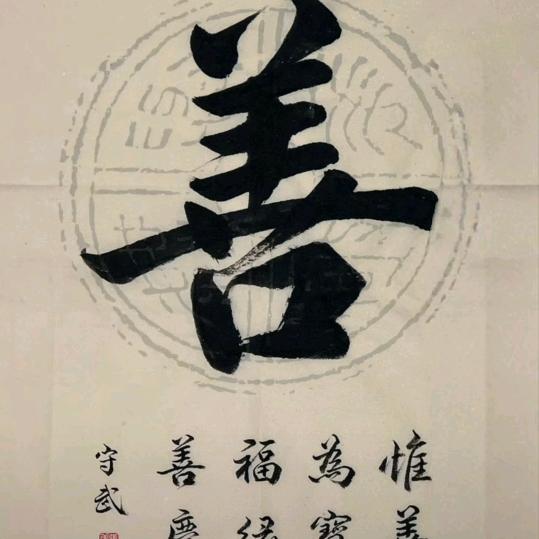 善
惟善
為寶
福緣
善慶
守武